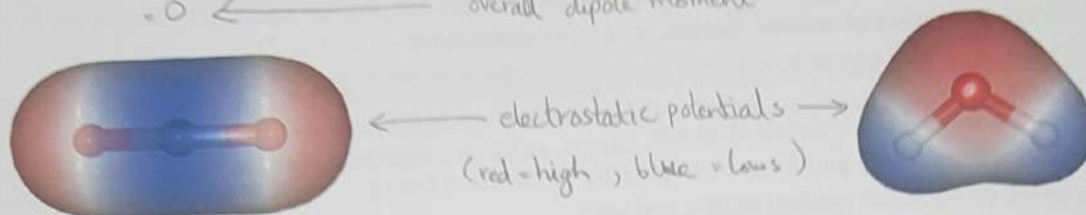 = 0 ← overall dipole moment
← electrostatic potentials →
(red = high , blue = lows )